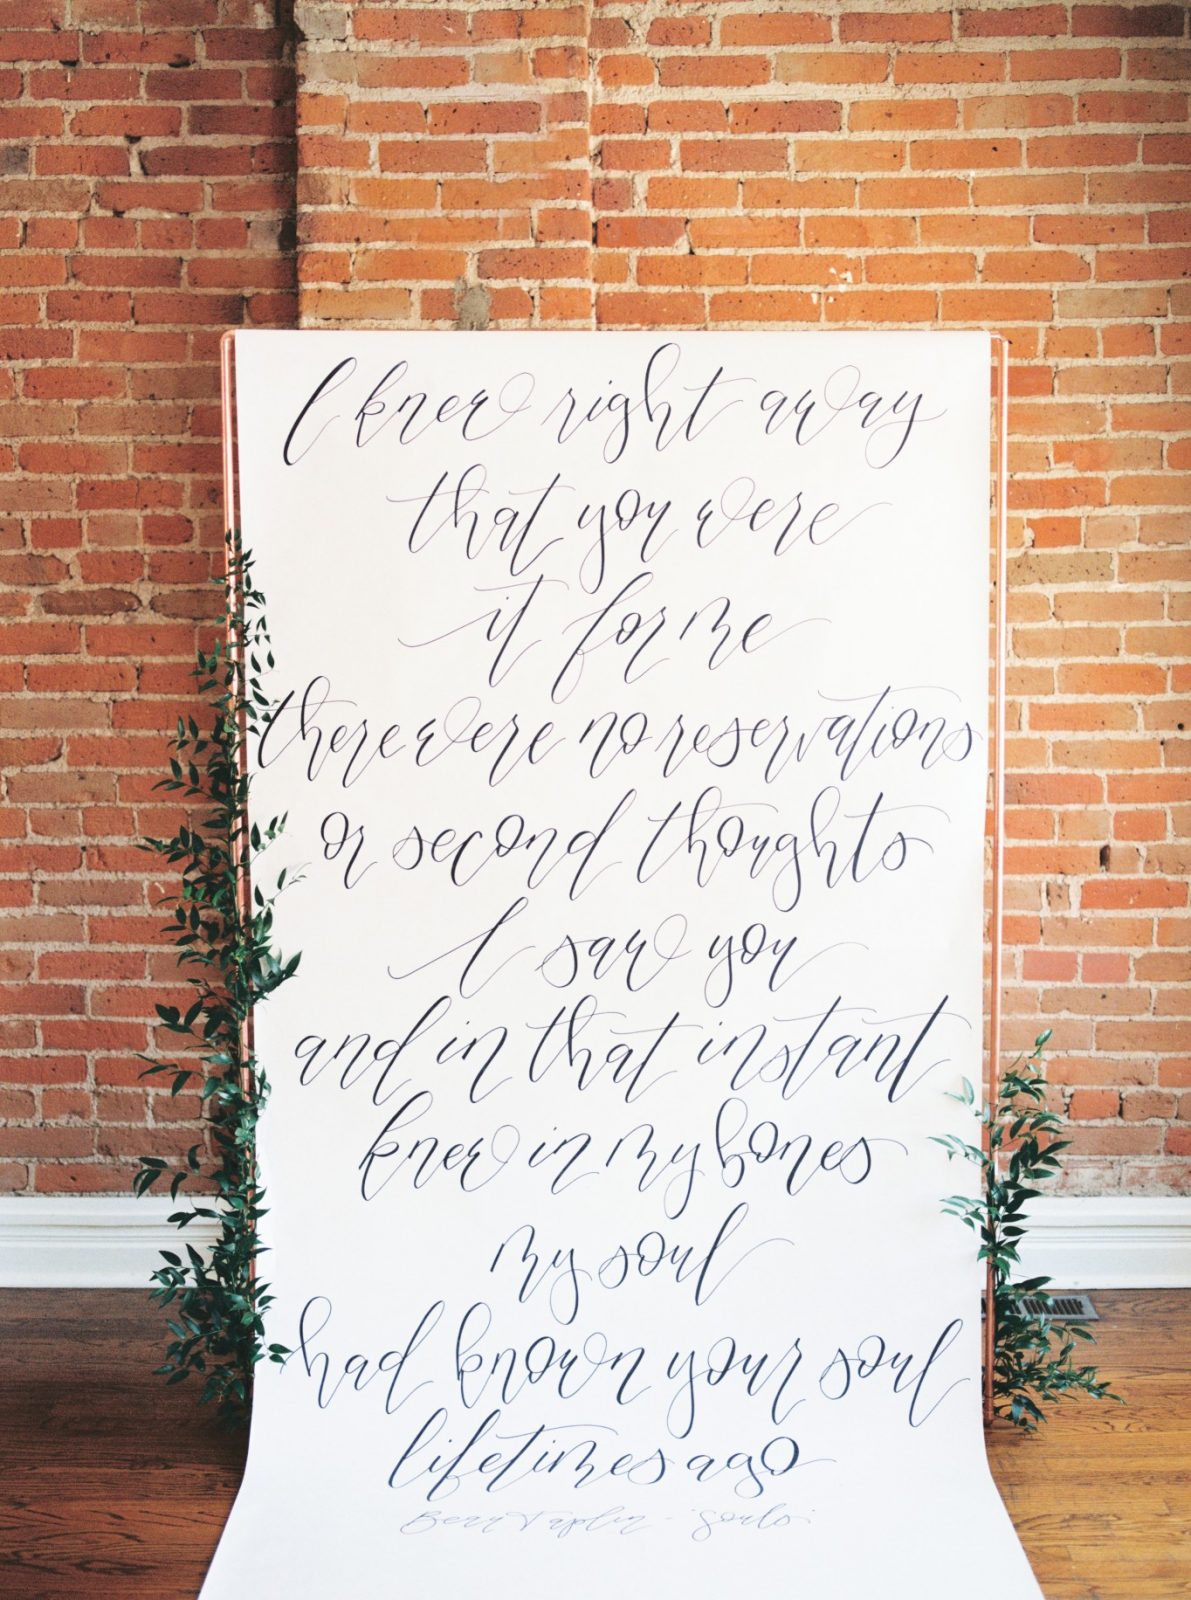 I knew right away
that you were
it for me
there were no reservations
or second thoughts
I saw you
and in that instant
knew in my bones
my soul
had known your soul
lifetimes ago
Beau Taplin - Souls